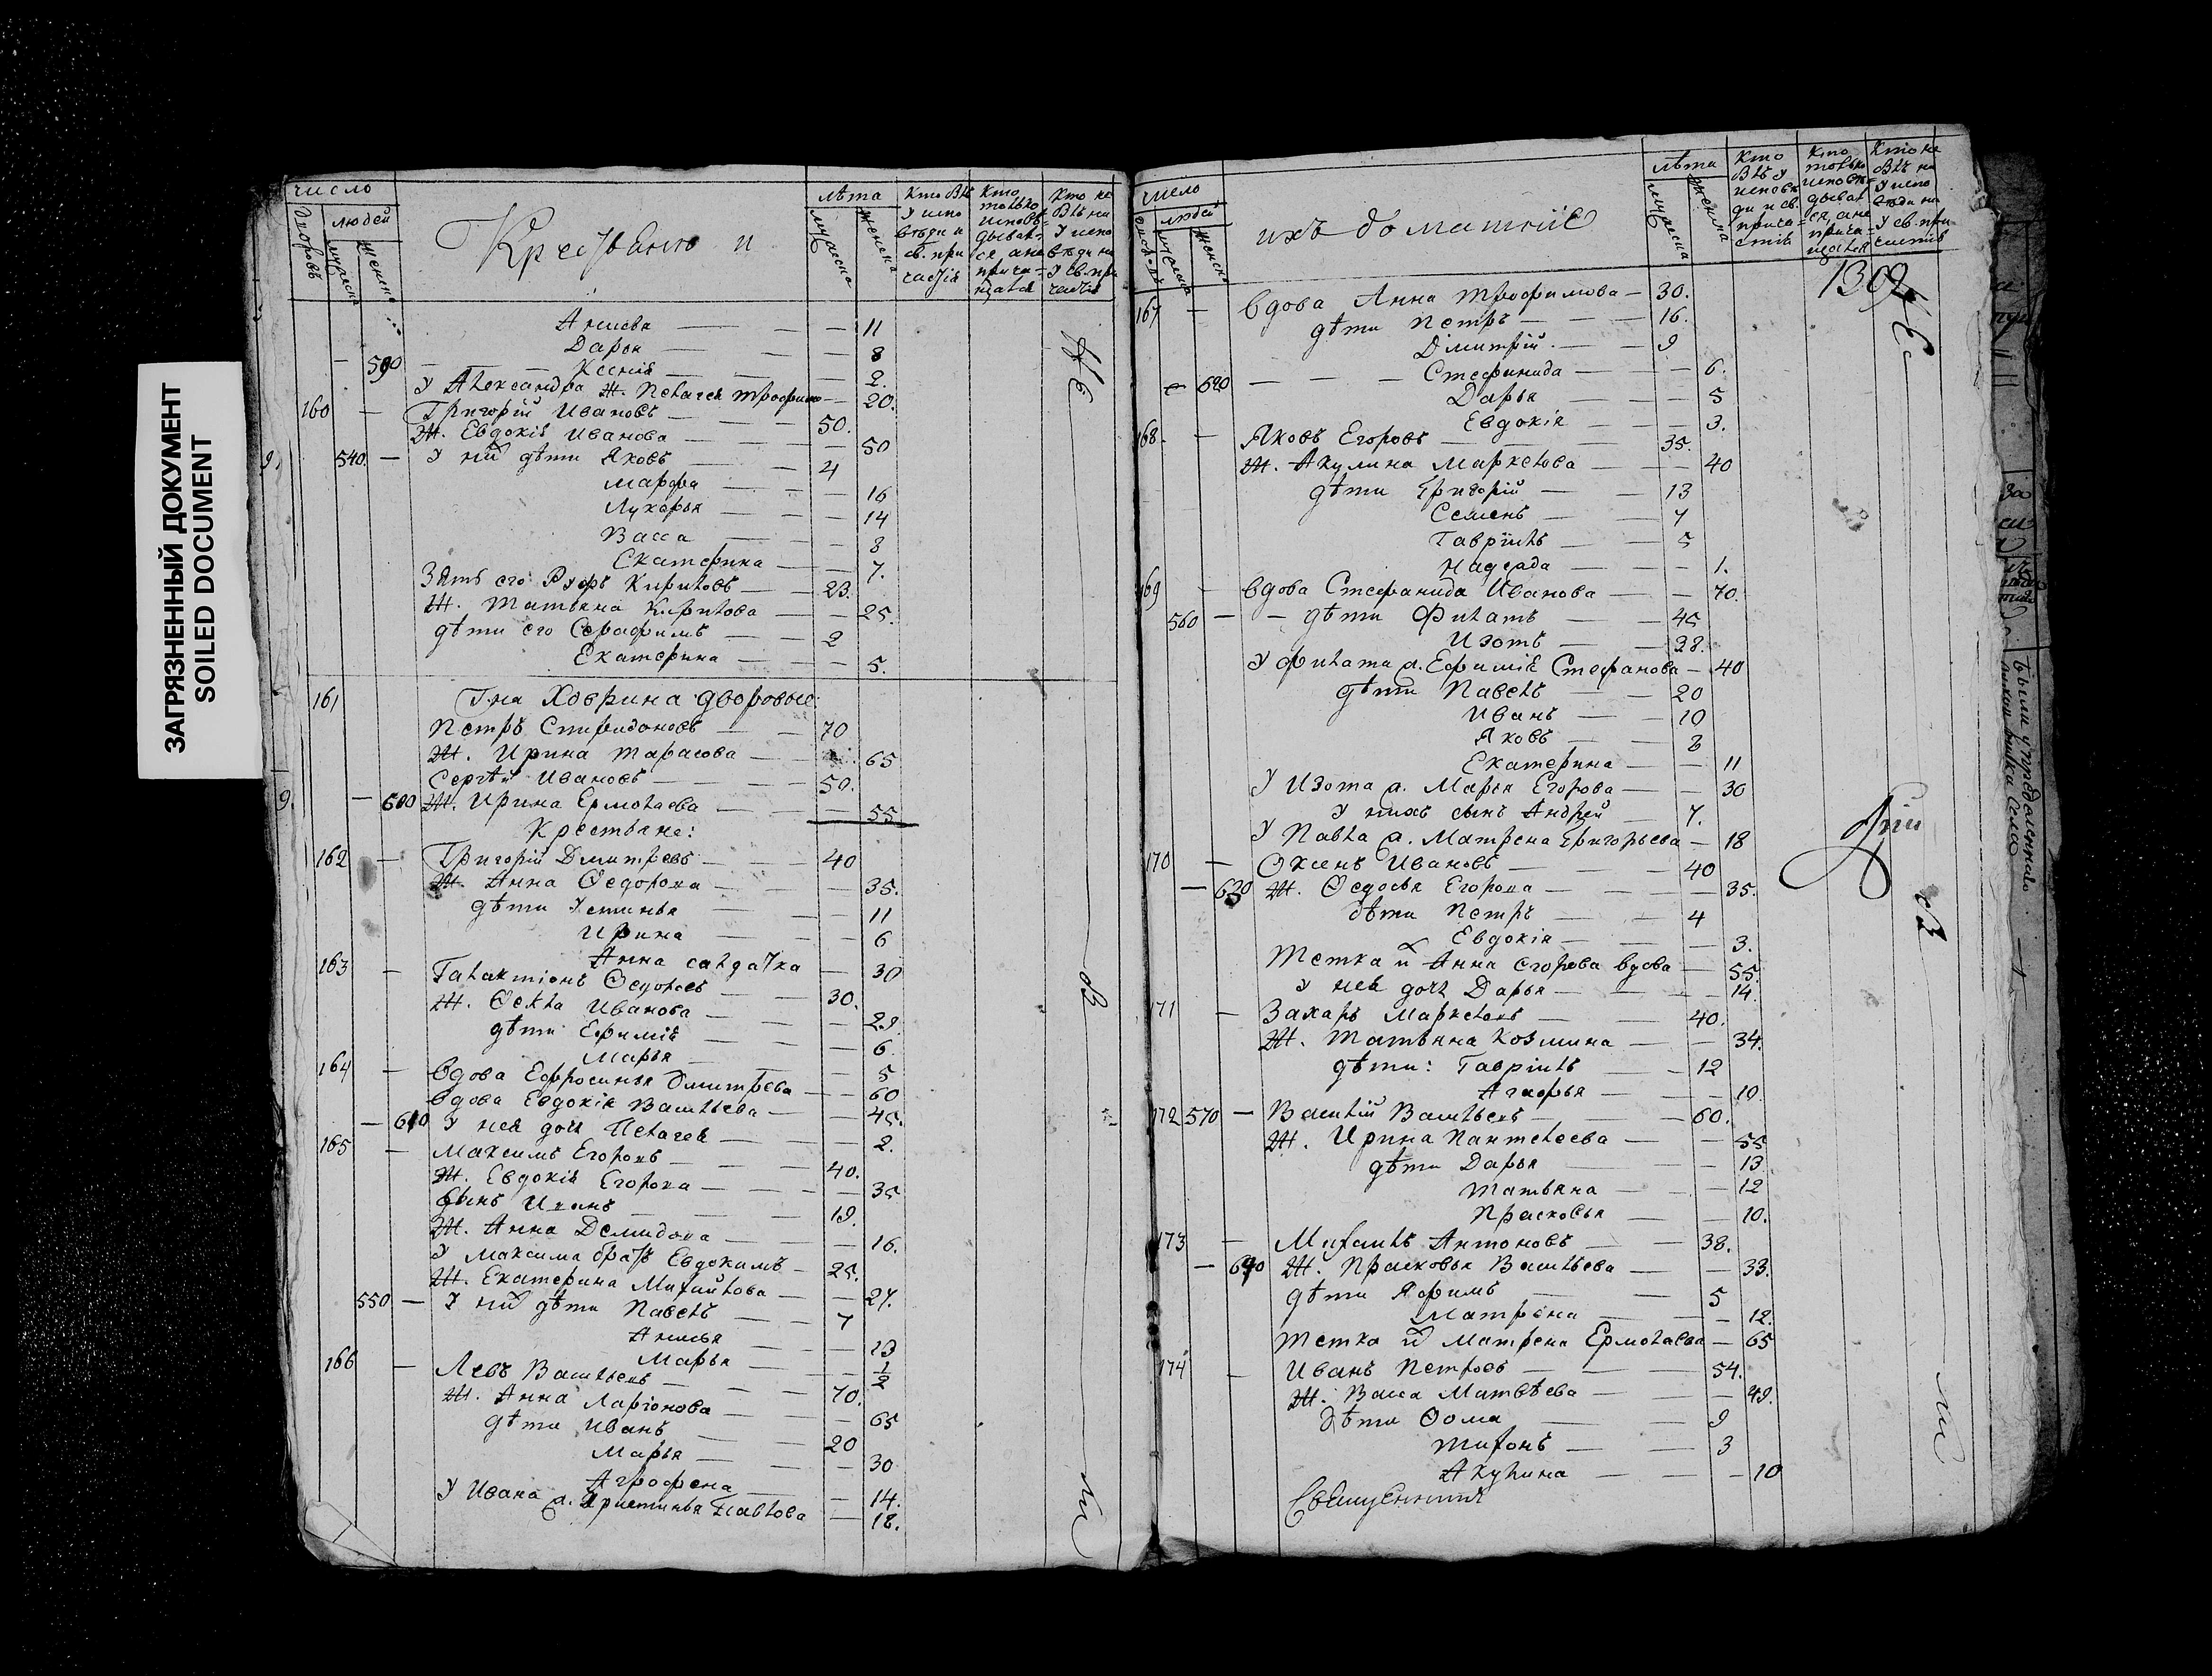 ЗАГРЯЗНЕННЫЙ ДОКУМЕНТ
SOILED DOCUMENT
число
людей
Крестьяне и
лѣта
Анисья 11
Дарья 8
590 Ксенія 2.
У Александра Ж. Пелагея Трофимо 20.
160 Григорій Ивановъ 50.
Ж. Евдокія Иванова 50
540. У них дѣти Яковъ 4
Марфа 16
Лукерья 14
Васса 8
Екатерина 7.
Зять его Руфъ Кириловъ 23.
Ж. Татьяна Кирилова 25.
дѣти его Серафимъ 2
Екатерина 5.
161 Гна Ховрина дворовые:
Петръ Спиридоновъ 70
Ж. Ирина Тарасова 65
Сергѣй Ивановъ 50.
600 Ж. Ирина Ермолаева 55
Крестьяне:
162 Григорій Дмитревъ 40
Ж. Анна Ѳедорова 35.
дѣти Устинья 11
Ирина 6
Анна салдатка 30
163 Галактіонъ Ѳедоровъ 30.
Ж. Ѳекла Иванова 29.
дѣти Ефимія 6.
Марья 5
164 Вдова Ефросинья Дмитрева 60
Вдова Евдокія Васильева 45.
610 У нея дочь Пелагея 2.
165 Максимъ Егоровъ 40.
Ж. Евдокія Егорова 35
Сынъ Иванъ 19.
Ж. Анна Демидова 16.
У Максима братъ Евдокимъ 25.
Ж. Екатерина Михайлова 27.
550 У них дѣти Павелъ 7
Анисья 13
Марья 1/2
166 Левъ Васильевъ 70.
Ж. Анна Ларіонова 65
дѣти Иванъ 20
Марья 30
Аграфена 14.
У Ивана Ж. Христинья Павлова 18.
число
людей
ихъ домашніе
лѣта
1309
167 Вдова Анна Трофимова 30.
дѣти Петръ 16.
Димитрій 9
620 Стефанида 6.
Дарья 5
Евдокія 3.
168. Яковъ Егоровъ 35.
Ж. Акулина Маркелова 40
дѣти Григорій 13
Семенъ 7
Гаврилъ 5
Надежда 1.
169 Вдова Стефанида Иванова 70.
560 дѣти Филатъ 45
Изотъ 28.
У Филата ж. Ефимія Стефанова 40
дѣти Павелъ 20
Иванъ 10
Яковъ 8
Екатерина 11
У Изота ж. Марья Егорова 30
У нихъ сынъ Андрей 7.
У Павла ж. Матрена Григорьева 18
170 Оксенъ Ивановъ 40
630 Ж. Ѳедосья Егорова 35.
дѣти Петръ 4
Евдокія 3.
Тетка их Анна Егорова вдова 55.
У нея дочь Дарья 14.
171 Захаръ Маркеловъ 40.
Ж. Татьяна Козмина 34.
дѣти: Гаврилъ 12
Агафья 10.
172 570 Василій Васильевъ 60.
Ж. Ирина Пантелеева 55
дѣти Дарья 13
Татьяна 12
Прасковья 10.
173 Михаилъ Антоновъ 38.
640 Ж. Прасковья Васильева 33.
дѣти Яфимъ 5
Матрена 12.
Тетка их Матрена Ермолаева 65
174 Иванъ Петровъ 54.
Ж. Васса Матвѣева 49.
Дѣти Ѳома 9
Тихонъ 3
Акулина 10